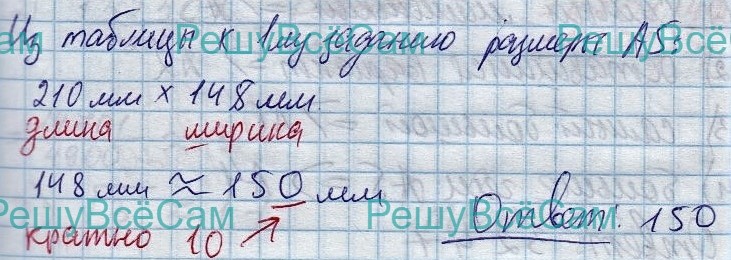 Из таблицы к 1му заданию размеры А5:
210 мм × 148 мм
длина ширина
148 мм ≈ 150 мм
кратно 10
Ответ: 150
РешуВсёСам РешуВсёСам
РешуВсёСам РешуВсёСам